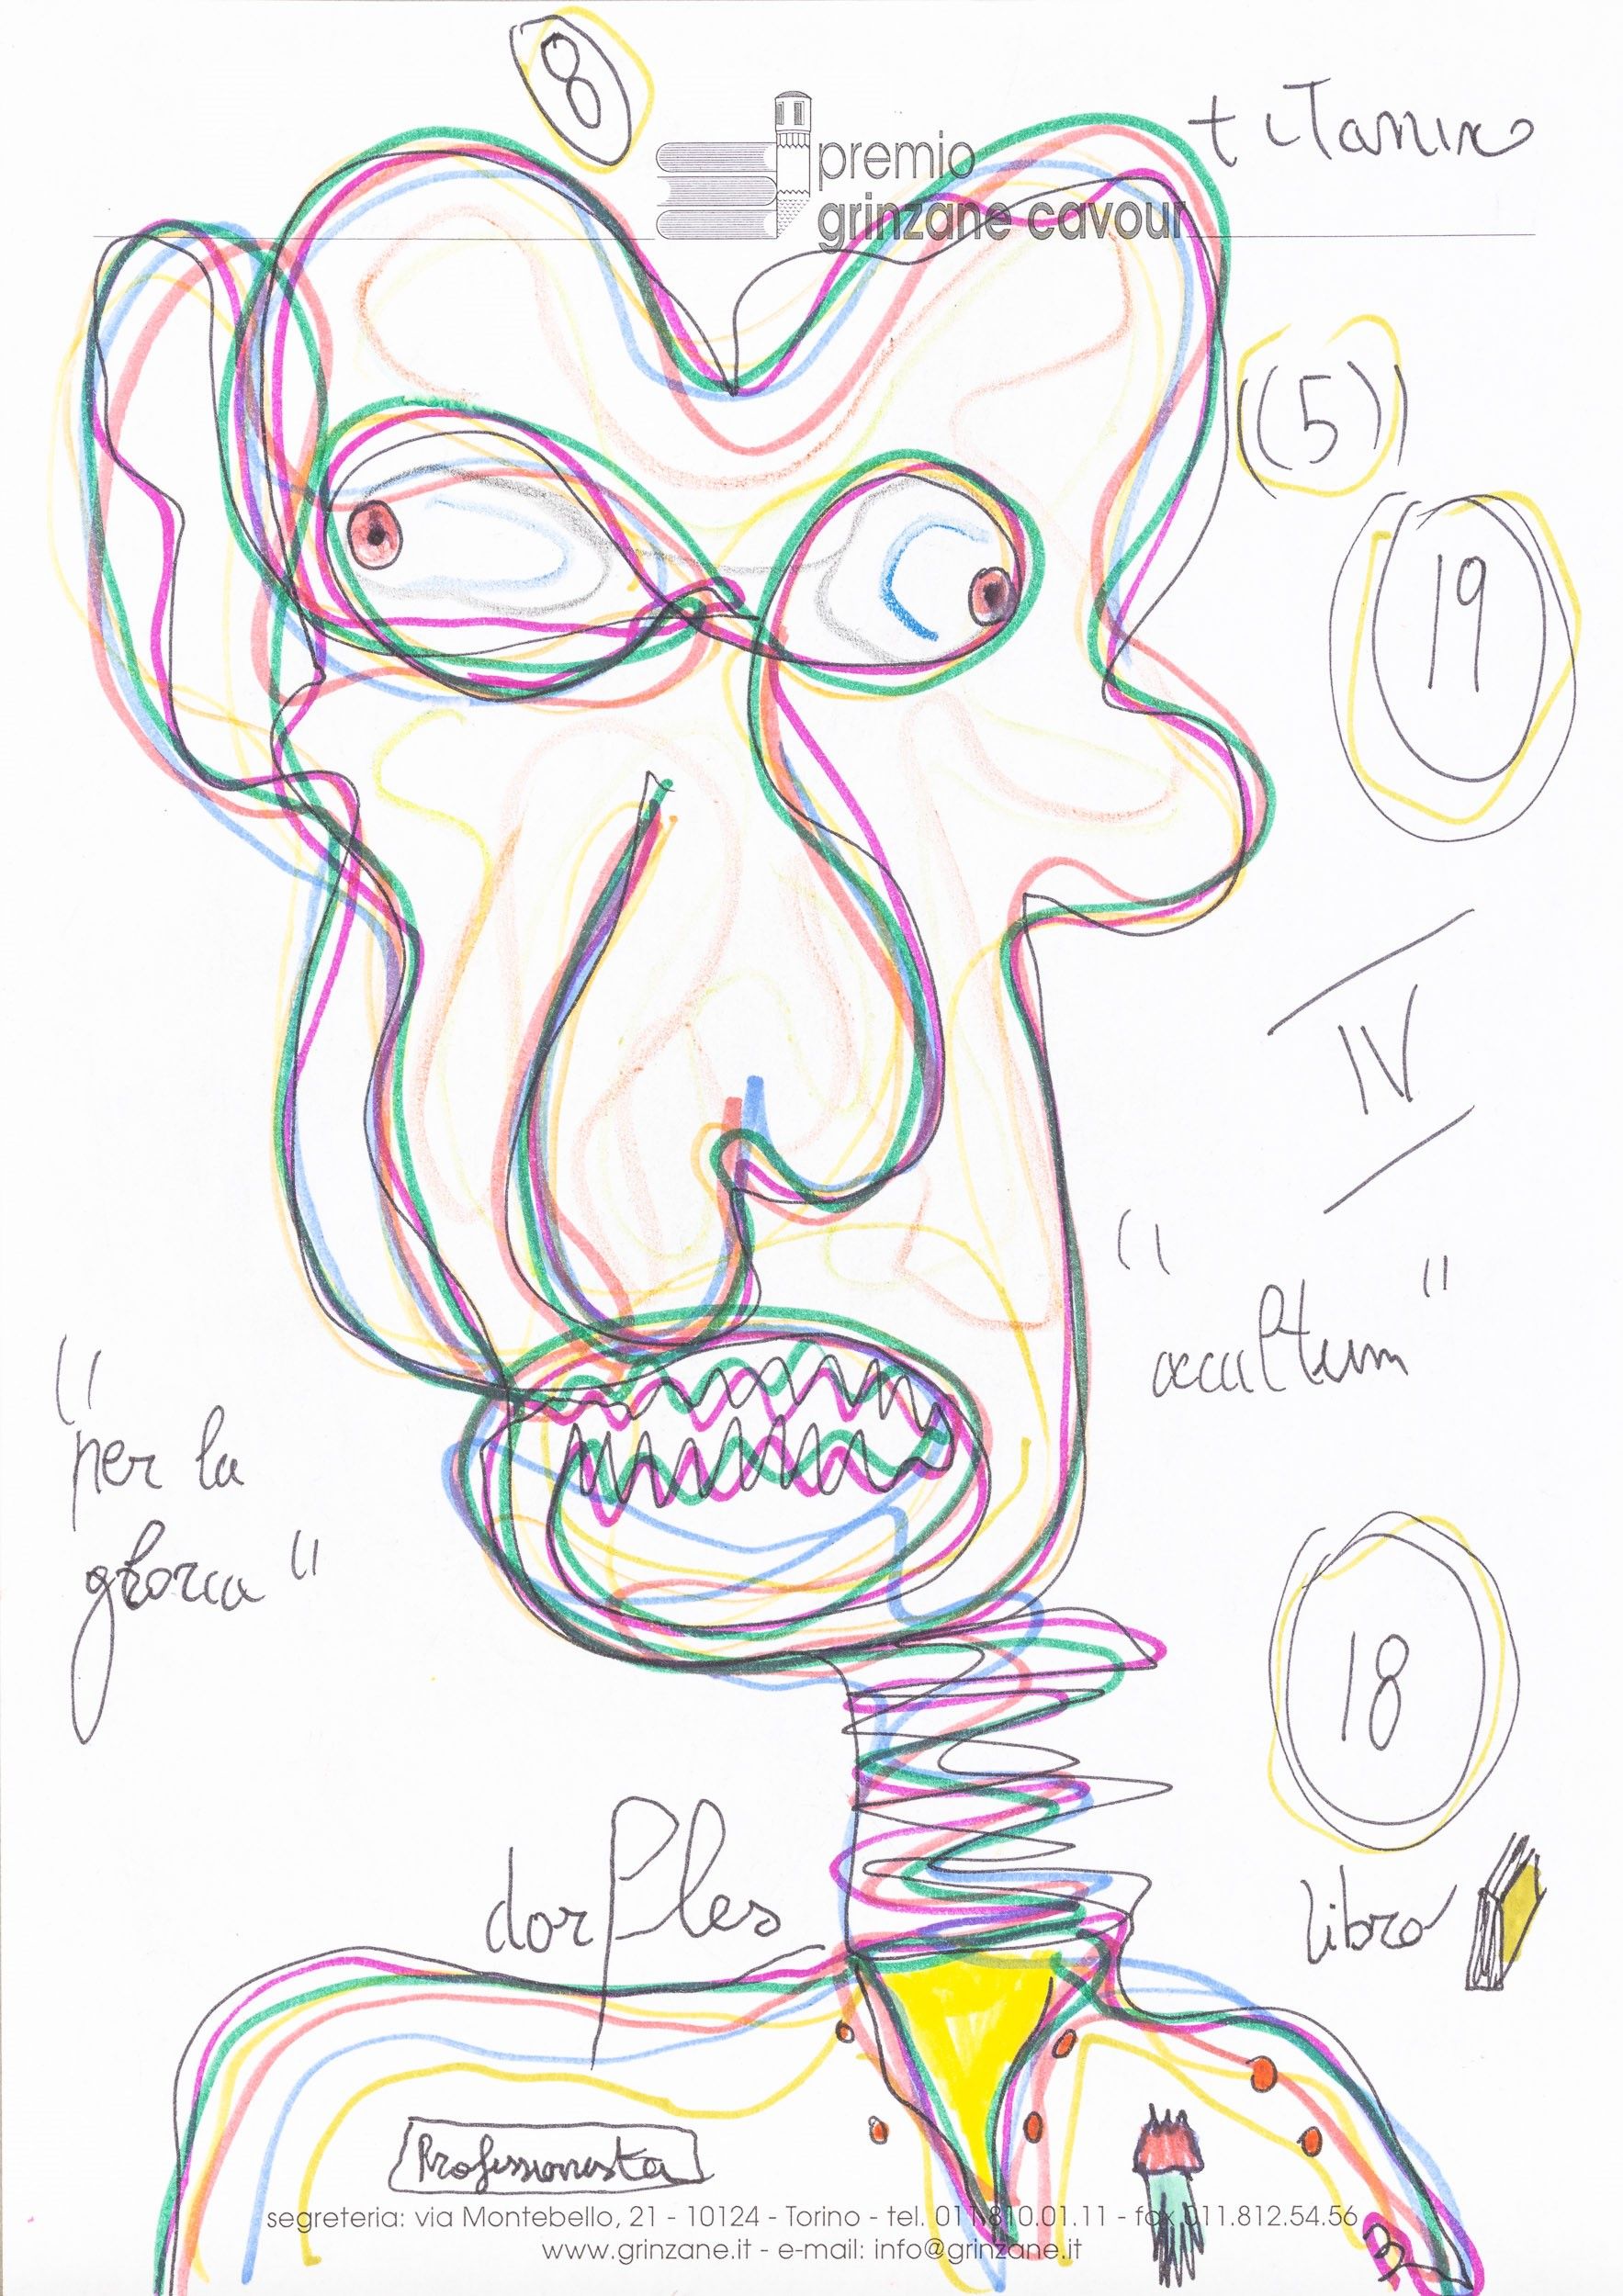 8
premio
grinzane cavour
(5))
19
IV
"occultum"
"per la
gloria"
18
dorfles
libro
Professionista
segreteria: via Montebello, 21 - 10124 - Torino - tel. 011.810.01.11 - fax 011.812.54.56
www.grinzane.it - e-mail: info@grinzane.it